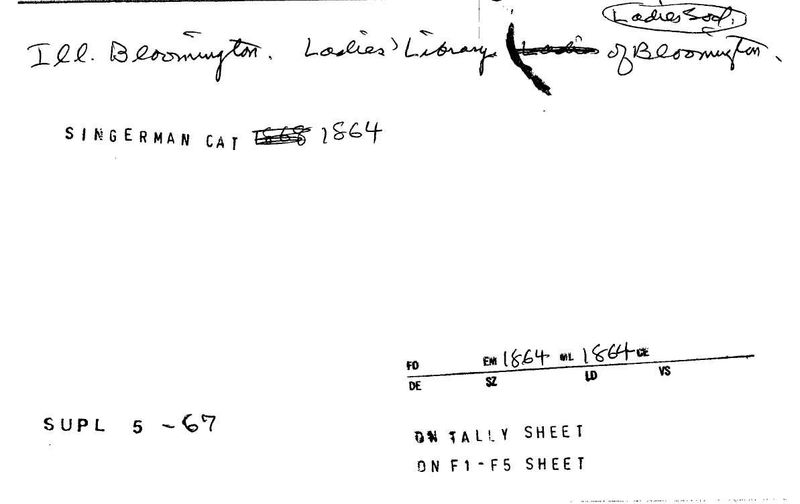 Ladies Soc.
Ill. Bloomington. Ladies' Library of Bloomington.
SINGERMAN CAT 1868 1864
FO EM 1864 ML 1864 CE
DE SZ LD VS
SUPL 5 - 67
ON TALLY SHEET
ON F1-F5 SHEET